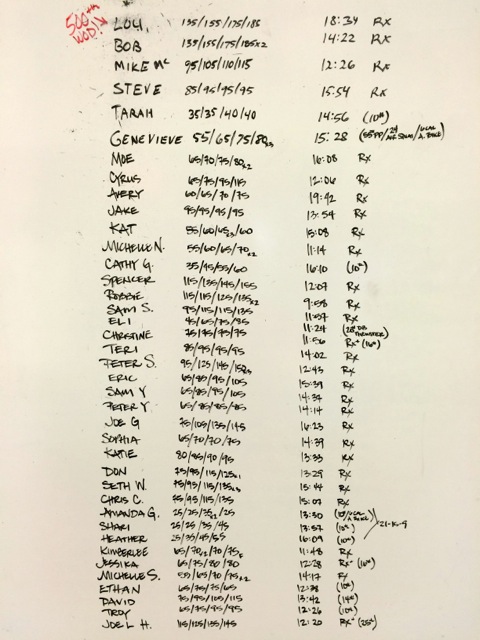 500th
WOD!
LOU, 135/155/175/185 18:34 Rx
BOB 135/155/175/185x2 14:22 Rx
MIKE Mc 95/105/110/115 12:26 Rx
STEVE 85/95/95/95 15:54 Rx
TARAH 35/35/40/40 14:56 (10#)
GENEVIEVE 55/65/75/80x3 15:28
MOE 65/70/75/80x2 16:08 Rx
CYRUS 65/75/95/115 12:06 Rx
AVERY 60/65/70/75 19:42 Rx
JAKE 95/95/95/95 13:54 Rx
KAT 15:08 Rx
MICHELLE N. 55/60/65/70x2 11:14 Rx
CATHY G. 35/45/55/60 16:10 (10#)
SPENCER 115/135/145/155 12:07 Rx
ROBBIE 115/115/125/135x2 9:58 Rx
SAM S. 95/115/115/135 11:57 Rx
ELI 45/65/75/85 11:24
CHRISTINE 75/75/75/75 11:56 Rx+ (16#)
TERI 85/95/95/95 14:02 Rx
PETER S. 12:43 Rx
ERIC 65/85/95/105 15:39 Rx
SAM Y 65/85/95/105 14:34 Rx
PETER Y 65/85/85/85 14:14 Rx
JOE G 75/105/135/145 16:23 Rx
SOPHIA 65/70/70/75 14:39 Rx
KATIE 80/85/90/95 13:33 Rx
DON 75/95/115/125x1 13:29 Rx
SETH W. 75/95/115/135x3 15:44 Rx
CHRIS C. 75/95/115/135 15:07 Rx
AMANDA G. 25/25/35x2/25 13:30
SHARI 25/25/35/45 13:57 (10#) 21-15-9
HEATHER 25/35/45/55 16:09 (10#)
KIMBERLEE 11:48 Rx
JESSIKA 65/75/80/80 12:28 Rx+ (16#)
MICHELLE S. 55/65/70/75x2 14:17 Rx
ETHAN 65/75/75/65 12:38 (10#)
DAVID 75/95/105/115 13:42 (14#)
TROY 65/75/95/95 12:26 (10#)
JOEL H. 115/125/135/145 12:20 Rx+ (25#)